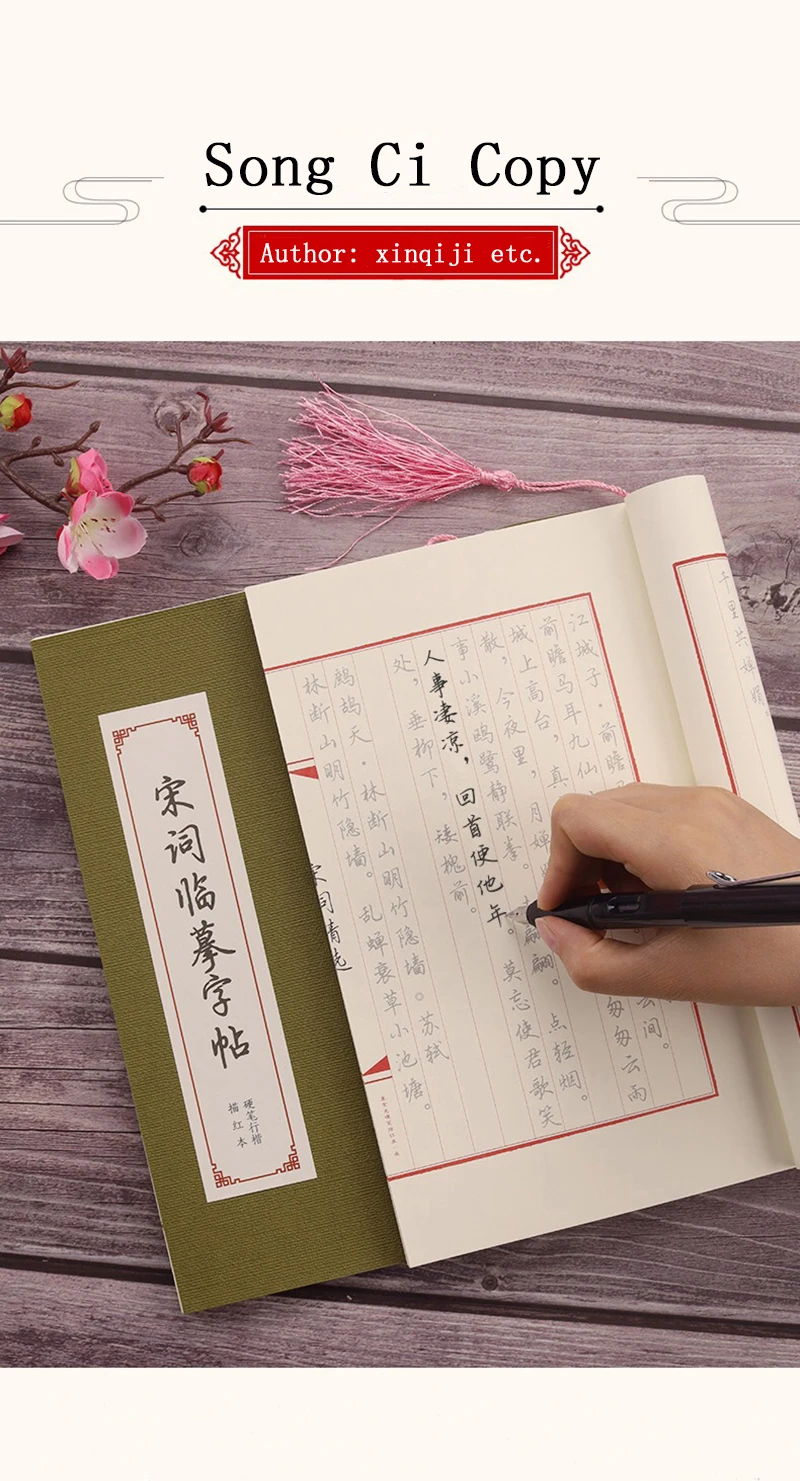 Song Ci Copy
Author: xinqiji etc.
宋词临摹字帖
硬笔行楷
描红本
千里共婵娟。
江城子·前瞻
前瞻马耳九仙
云间。
城上高台，真
匆匆云雨
散，今夜里，月婵
事小溪鸥鹭静联拳。
翩翩。点轻烟。
人事凄凉，回首便他年。莫忘使君歌笑
处，垂柳下，矮槐前。
鹧鸪天·林断山明竹隐墙。苏轼
林断山明竹隐墙。乱蝉衰草小池塘。
宋词精选